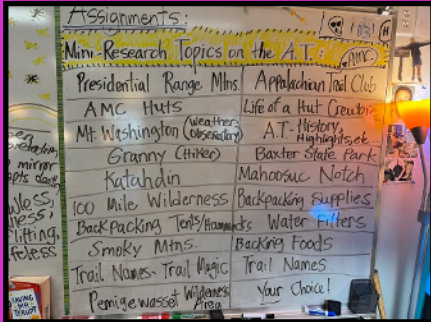 Assignments:
Mini-Research Topics on the A.T.
AMC
Presidential Range Mtns.
Appalachian Trail Club
AMC Huts
Life of a Hut
Mt. Washington (Weather Observatory)
A.T.-History, Highlights, etc.
Granny (Hiker)
Baxter State Park
Katahdin
Mahoosuc Notch
100 Mile Wilderness
Backpacking Supplies
Backpacking Tents/Hammocks
Water Filters
Smoky Mtns.
Backing Foods
Trail Names - Trail Magic
Trail Names
Pemigewasset Wilderness Area
Your Choice!
mirror